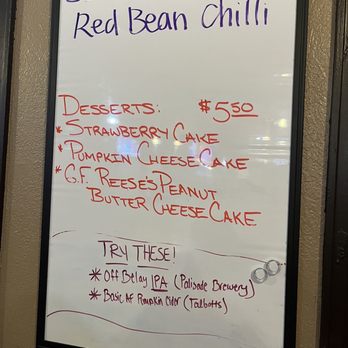 Red Bean Chilli
DESSERTS: $5.50
* STRAWBERRY CAKE
* PUMPKIN CHEESE CAKE
* G.F. REESE'S PEANUT
BUTTER CHEESE CAKE
TRY THESE!
* Off Belay IPA (Palisade Brewery)
* Basic AF Pumpkin Cider (Talbotts)